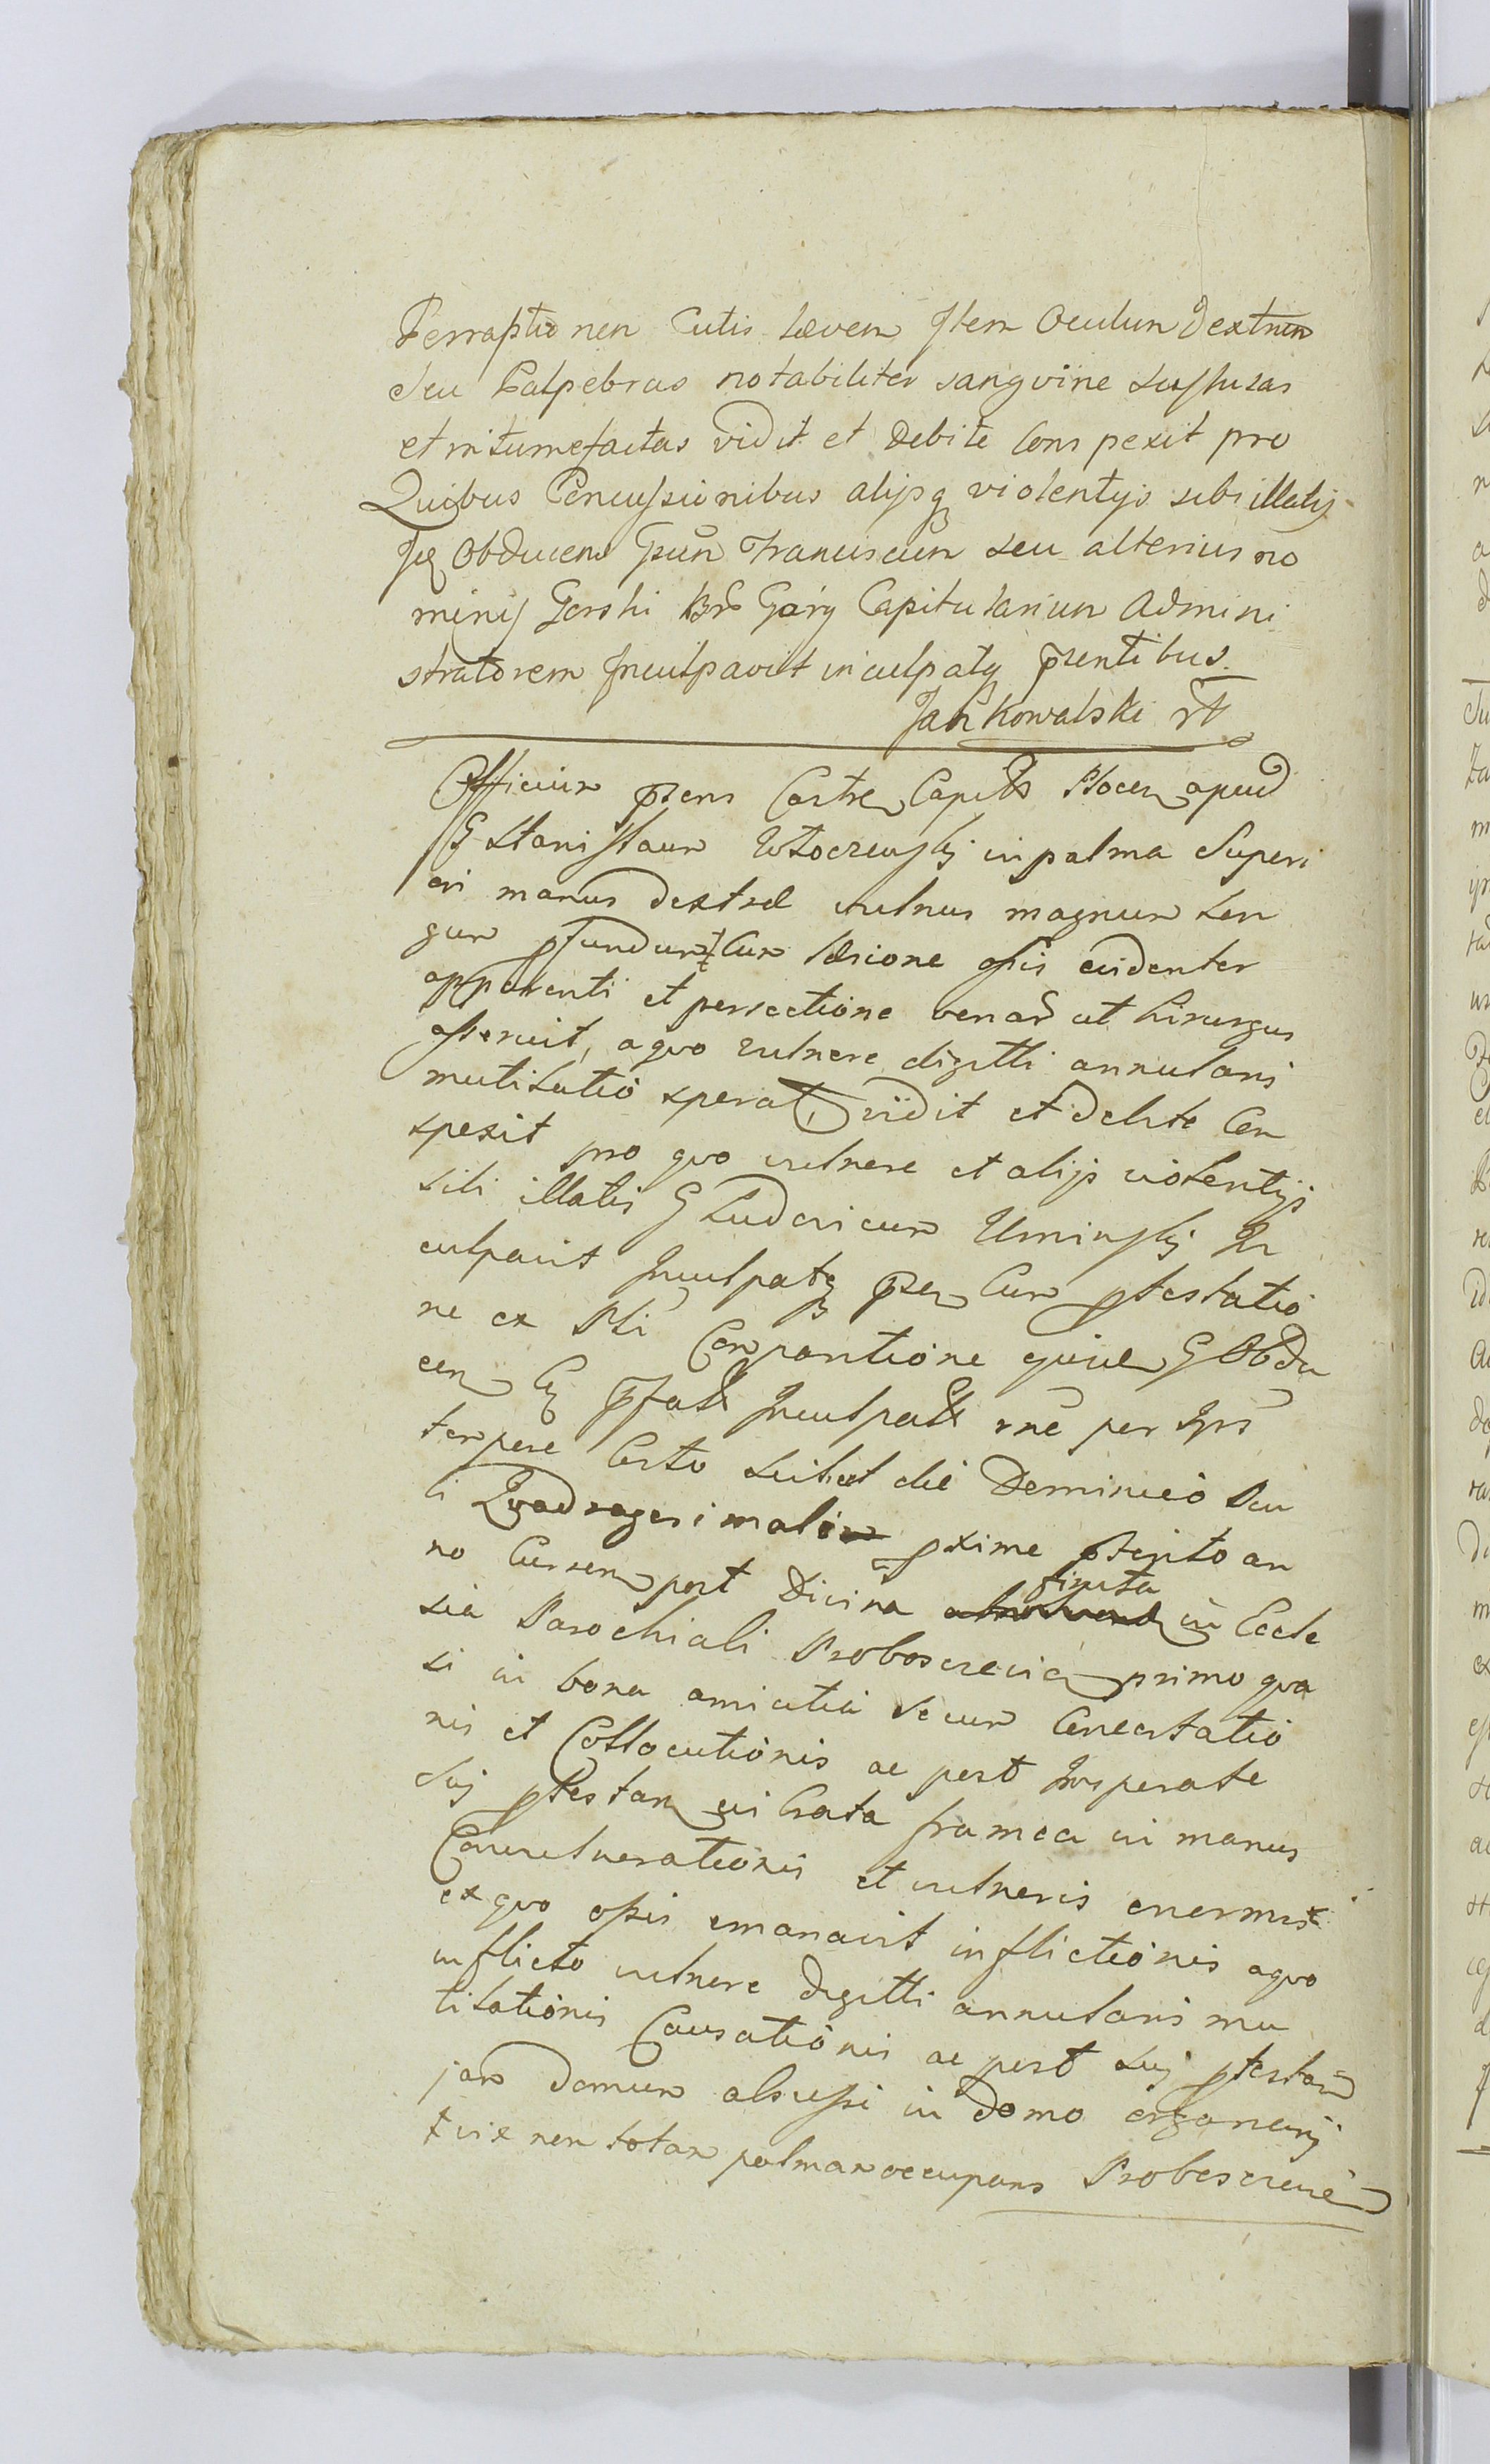 Perraptionen Cutis Levem Item Oculum Dextrum
Seu Palpebras notabiliter sangvine suffusas
et intumefactas vidit et debite Conspexit pro
Quibus Concussionibus alijsq violentijs sibi illatis
Jdq Obducens Gsum Franciscum seu alterius no
minis Gorski Capitularium Admini
stratorem Inculpavit inculpatq pñtibus
Jankowalski
Officium pñns Castre Capitle Plocen apud
G Stanislaum Wtoczewskj in palma Superi
ori manus dextræ vulnus magnum lon
gum pfundum Cum læsione ossis evidenter
apparenti et persectione venar ut Chirurgus
asseruit, a quo vulnere digitti annularis
mutilatio sperat, vidit et debite Con
spexit pro quo vulnere et alijs violentijs
sibi illatis G Ludovicum Uminskj In
culpavit Inculpatq pñm Cum ptestatio
ne ex Pti Comparitione G Obdu
cen Cq pfati Inculpati rne per Ips
tempore Certo scilicet die Dominico
li Quadragesimali pxime pterito an
no Curren post Divina finita in Eccle
sia Parochiali Proboscrevien primo qva
si in bona amicitia secum
nis et Collocutionis ac post Insperate
Suj ptestan vibrata framea in manus
Convulnerationis et vulneris enormis
ex quo ossis emanavit inflictionis a quo
inflicto vulnere digitti annularis mu
tilationis Causationis ac post suj ptestan
jam domum abscessi in domo organarij
vix non totam palmam occupans Proboscrevie